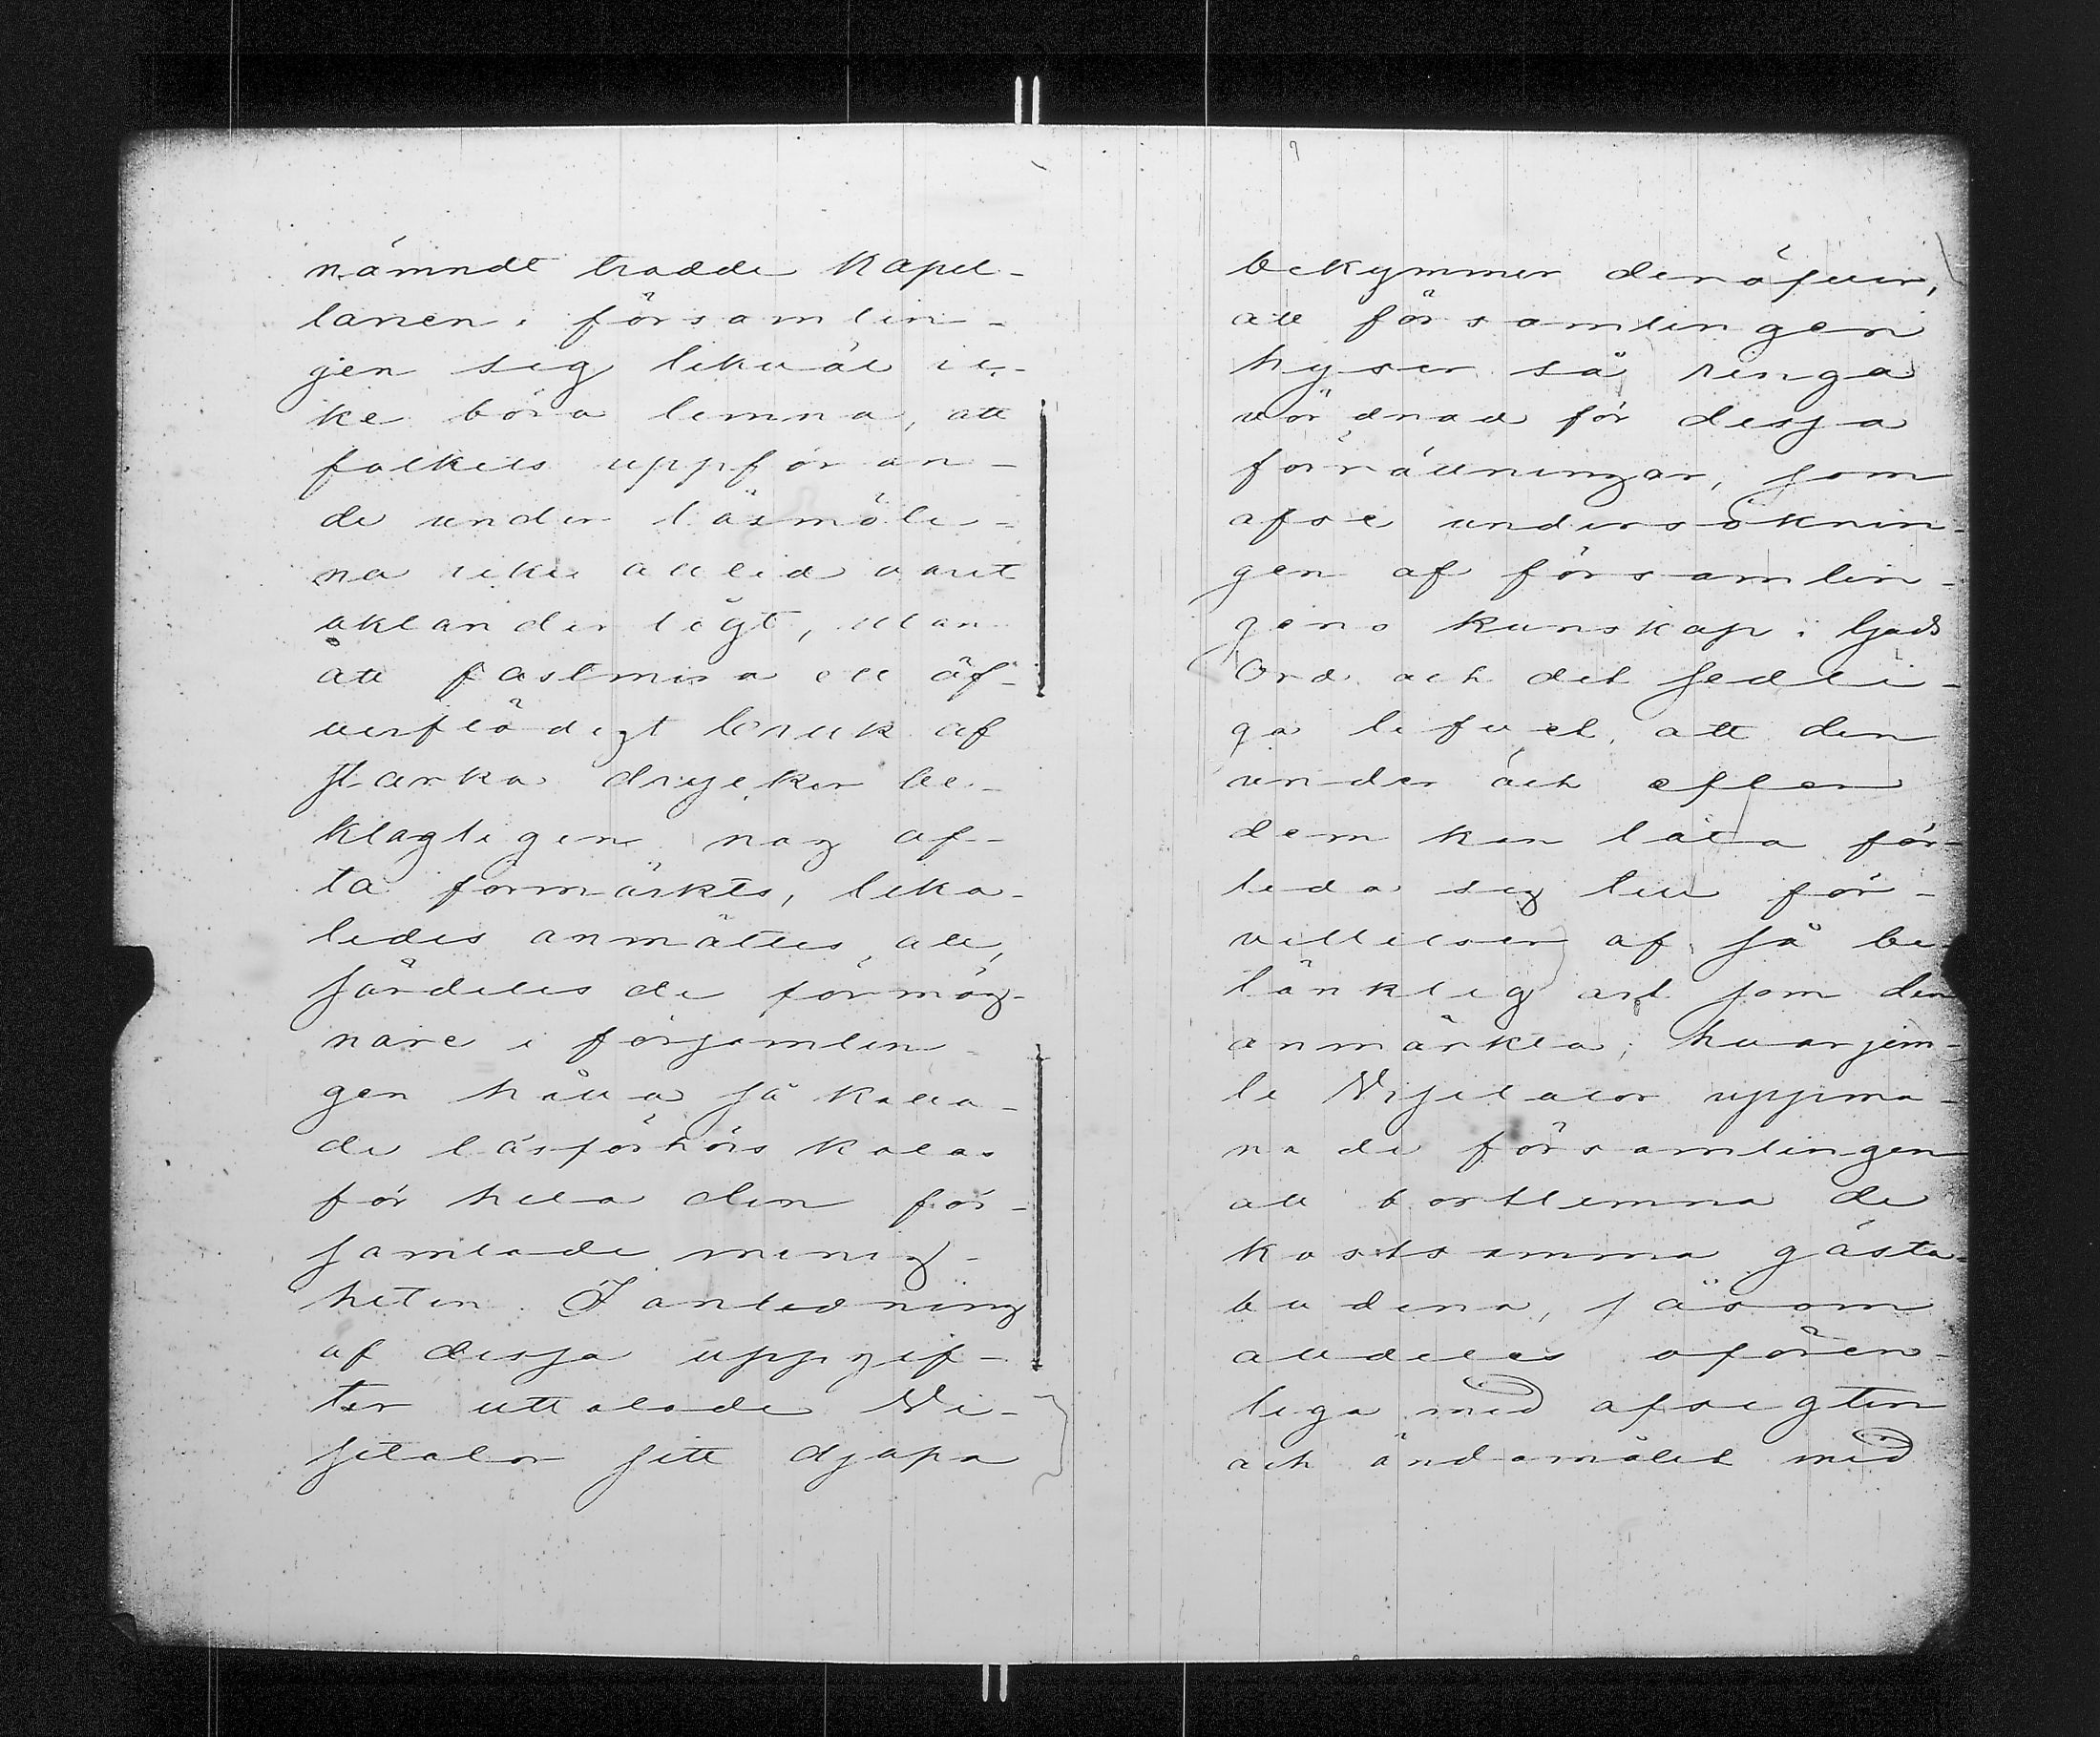 nämndt trodde Kapel-
lanen i försomlin-
gen sig likväl ic-
ke böra lemna, att
folkets uppföran-
de under läsmöte-
na icke alltid varit
oklanderligt, utan
att fastmera ett öf-
verflödigt bruk af
starka drycker be-
klagligen nog of-
ta förmärkts, lika-
ledes anmältes, att,
särdeles de förmög-
nare i församlin-
gen hålla så kalla-
de läsförhörs kalas
för hela den för-
samlade menig-
heten. I anledning
af dessa uppgif-
ter uttalade Vi-
sitator sitt djupa
bekymmer deröfver,
att församlingen
hyser så ringa
vördnad för dessa
förrättningar, som
afse undersöknin-
gen af församlin-
gens kunskap i Guds
Ord och det sedli-
ga lefvet, att den
under och efter
dem kan låta för-
leda sig till för-
villelser af så be-
tänklig art som den
anmärkta; hvarjem-
te Visitator uppma-
nade församlingen
att bortlemna de
kostsamma gästa-
buderna, såsom
alldeles ofören-
liga med afsigten
och ändamålet med